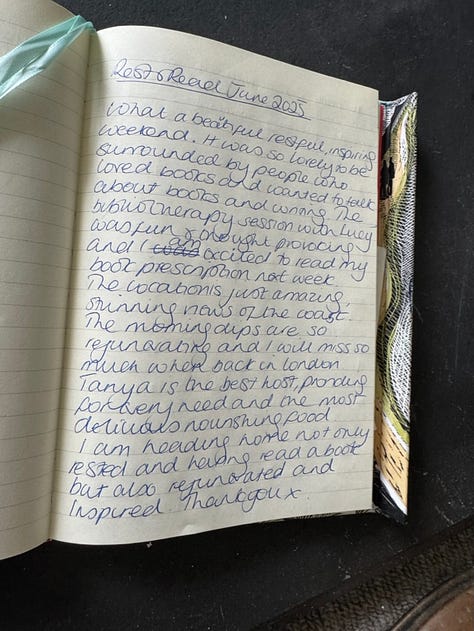 Rest & Read June 2025
What a beautiful restful, inspiring
weekend. It was so lovely to be
surrounded by people who
loved books and wanted to talk
about books and writing. The
bibliotherapy session with Lucy
was fun & thought provoking
and I am excited to read my
book prescription next week.
The location is just amazing,
stunning views of the coast.
The morning dips are so
rejuvenating and I will miss so
much when back in London
Tanya is the best host, providing
for every need and the most
delicious nourishing food
I am heading home not only
rested and having read a book
but also rejuvenated and
Inspired. Thankyou x.